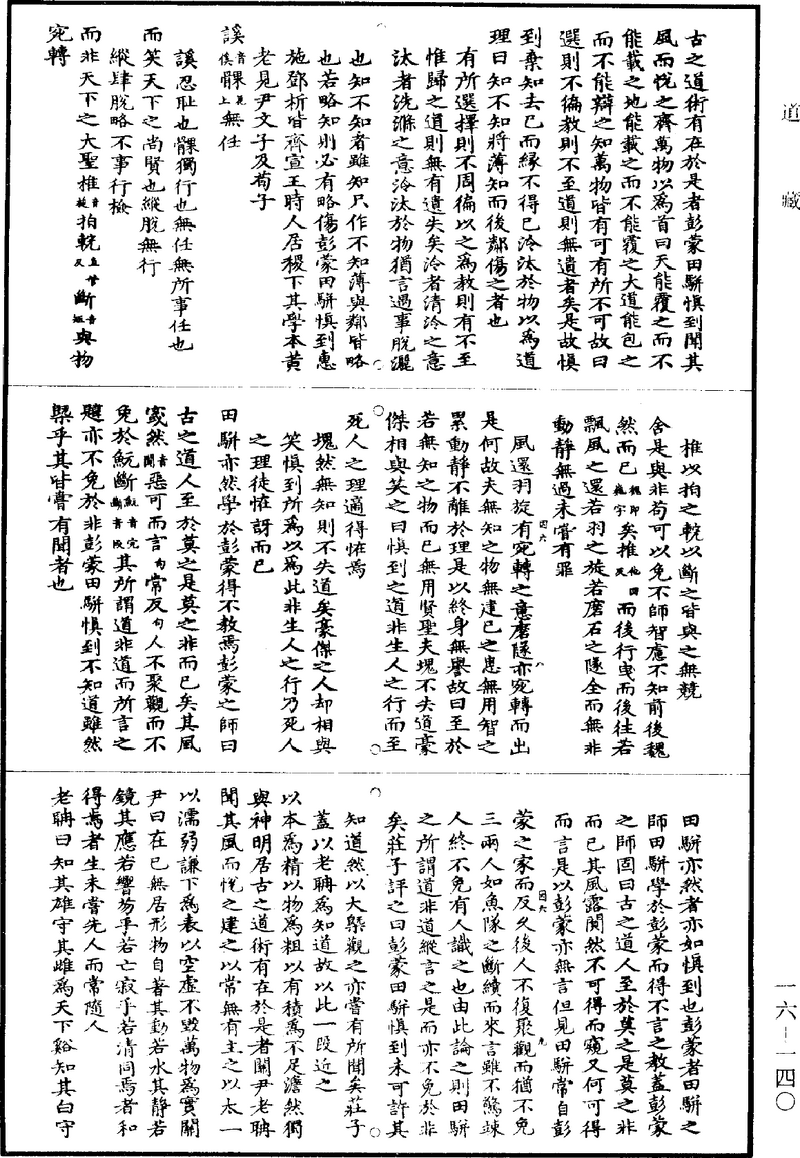 道藏
古之道術有在於是者彭蒙田駢慎到聞其
風而悅之齊萬物以為首曰天能覆之而不
能載之地能載之而不能覆之大道能包之
而不能辯之知萬物皆有可有所不可故曰
選則不徧教則不至道則無遺者矣是故慎
到棄知去已而緣不得已泠汰於物以為道
理曰知不知將薄知而後鄰傷之者也
有所選擇則不周徧以之為教則有不至
惟歸之道則無有遺失矣泠者清泠之意
汰者洗滌之意泠汰於物猶言遇事脫灑
也知不知者雖知只作不知薄與鄰皆略
也若略知則必有略傷彭蒙田駢慎到惠
施鄧析皆齊宣王時人居稷下其學本黃
老見尹文子及荀子
謑音傒髁上無任
謑忍耻也髁獨行也無任無所事任也
而笑天下之尚賢也縱脫無行
縱肆脫略不事行檢
而非天下之大聖推拍輐斷與物
宛轉
椎以拍之輐以斷之皆與之無競
舍是與非苟可以免不師智慮不知前後魏
然而已矣推而後行曳而後往若
飄風之還若羽之旋若磨石之隧全而無非
動靜無過未嘗有罪
風還羽旋有宛轉之意磨隧亦宛轉而出
是何故夫無知之物無建已之患無用智之
累動靜不離於理是以終身無譽故曰至於
若無知之物而已無用賢聖夫塊不失道豪
傑相與笑之曰慎到之道非生人之行而至
死人之理適得恠焉
塊然無知則不失道矣豪傑之人却相與
笑慎到所為以為此非生人之行乃死人
之理徒恠訝而已
田駢亦然學於彭蒙得不教焉彭蒙之師曰
古之道人至於莫之是莫之非而已矣其風
窢然惡可而言常反人不聚觀而不
免於魭斷其所謂道非道而所言之
韙亦不免於非彭蒙田駢慎到不知道雖然
槩乎其皆嘗有聞者也
田駢亦然者亦如慎到也彭蒙者田駢之
師田駢學於彭蒙而得不言之教蓋彭蒙
之師固曰古之道人至於莫之是莫之非
而已其風露闃然不可得而窺又何可得
而言是以彭蒙亦無言但見田駢常自彭
蒙之家而反久後人不復聚觀而猶不免
三兩人如魚隊之斷續而來言雖不驚竦
人終不免有人識之也由此論之則田駢
之所謂道非道縱言之是而亦不免於非
矣莊子評之曰彭蒙田駢慎到未可許其
知道然以大槩觀之亦嘗有所聞矣莊子
蓋以老聃為知道故以此一段近之
以本為精以物為粗以有積為不足澹然獨
與神明居古之道術有在於是者關尹老聃
聞其風而悅之建之以常無有主之以太一
以濡弱謙下為表以空虛不毀萬物為實關
尹曰在已無居形物自著其動若水其靜若
鏡其應若響芴乎若亡寂乎若清同焉者和
得焉者失未嘗先人而常隨人
老聃曰知其雄守其雌為天下谿知其白守
一六—一四〇